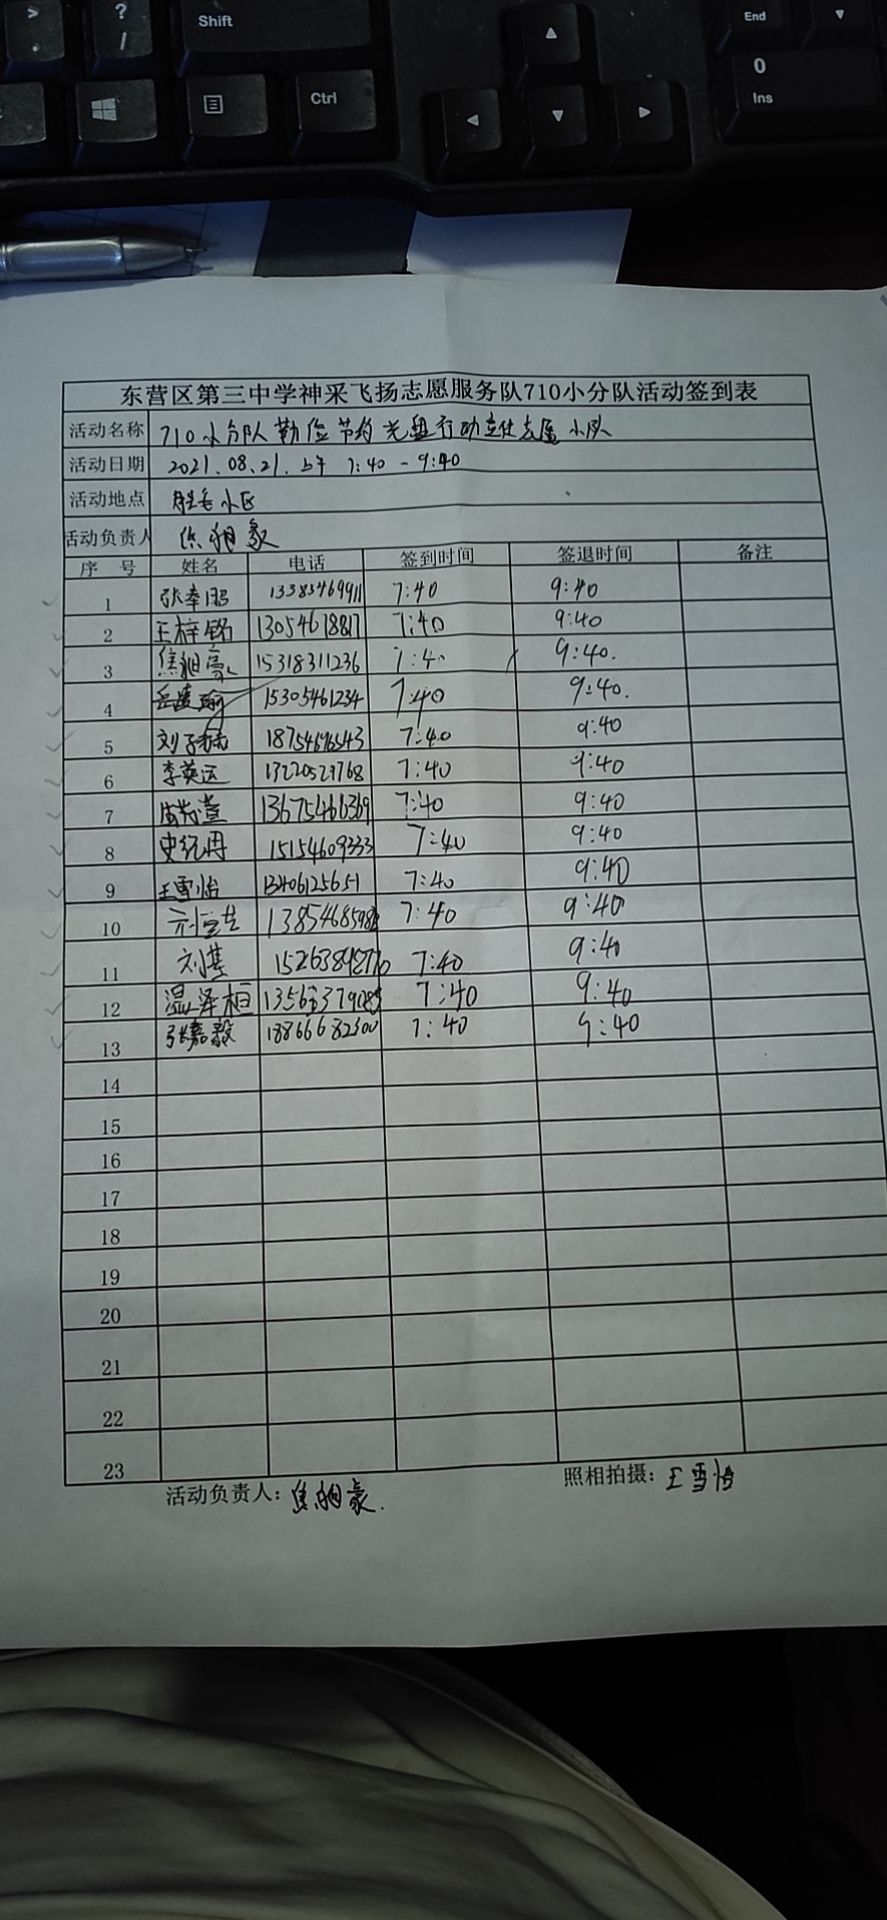 > .
? /
Shift
End
Ctrl
0
Ins
东营区第三中学神采飞扬志愿服务队710小分队活动签到表
活动名称 710小分队勤俭节约光盘行动 志愿小队
活动日期 2021.08.21.上午 7:40-9:40
活动地点 小区
活动负责人 焦翔豪
序号 姓名 电话 签到时间 签退时间 备注
1 13385469911 7:40 9:40
2 王梓铭 13054618817 7:40 9:40
3 焦翔豪 15318311236 7:40 9:40.
4 15305461234 7:40 9:40.
5 7:40 9:40
6 李英运 7:40 9:40
7 13675466369 7:40 9:40
8 15154609333 7:40 9:40
9 王雪怡 13406125651 7:40 9:40
10 7:40 9:40
11 刘基 7:40 9:40
12 温泽桓 7:40 9:40
13 张嘉毅 18866682300 7:40 9:40
14
15
16
17
18
19
20
21
22
23
活动负责人：焦翔豪.
照相拍摄：王雪怡